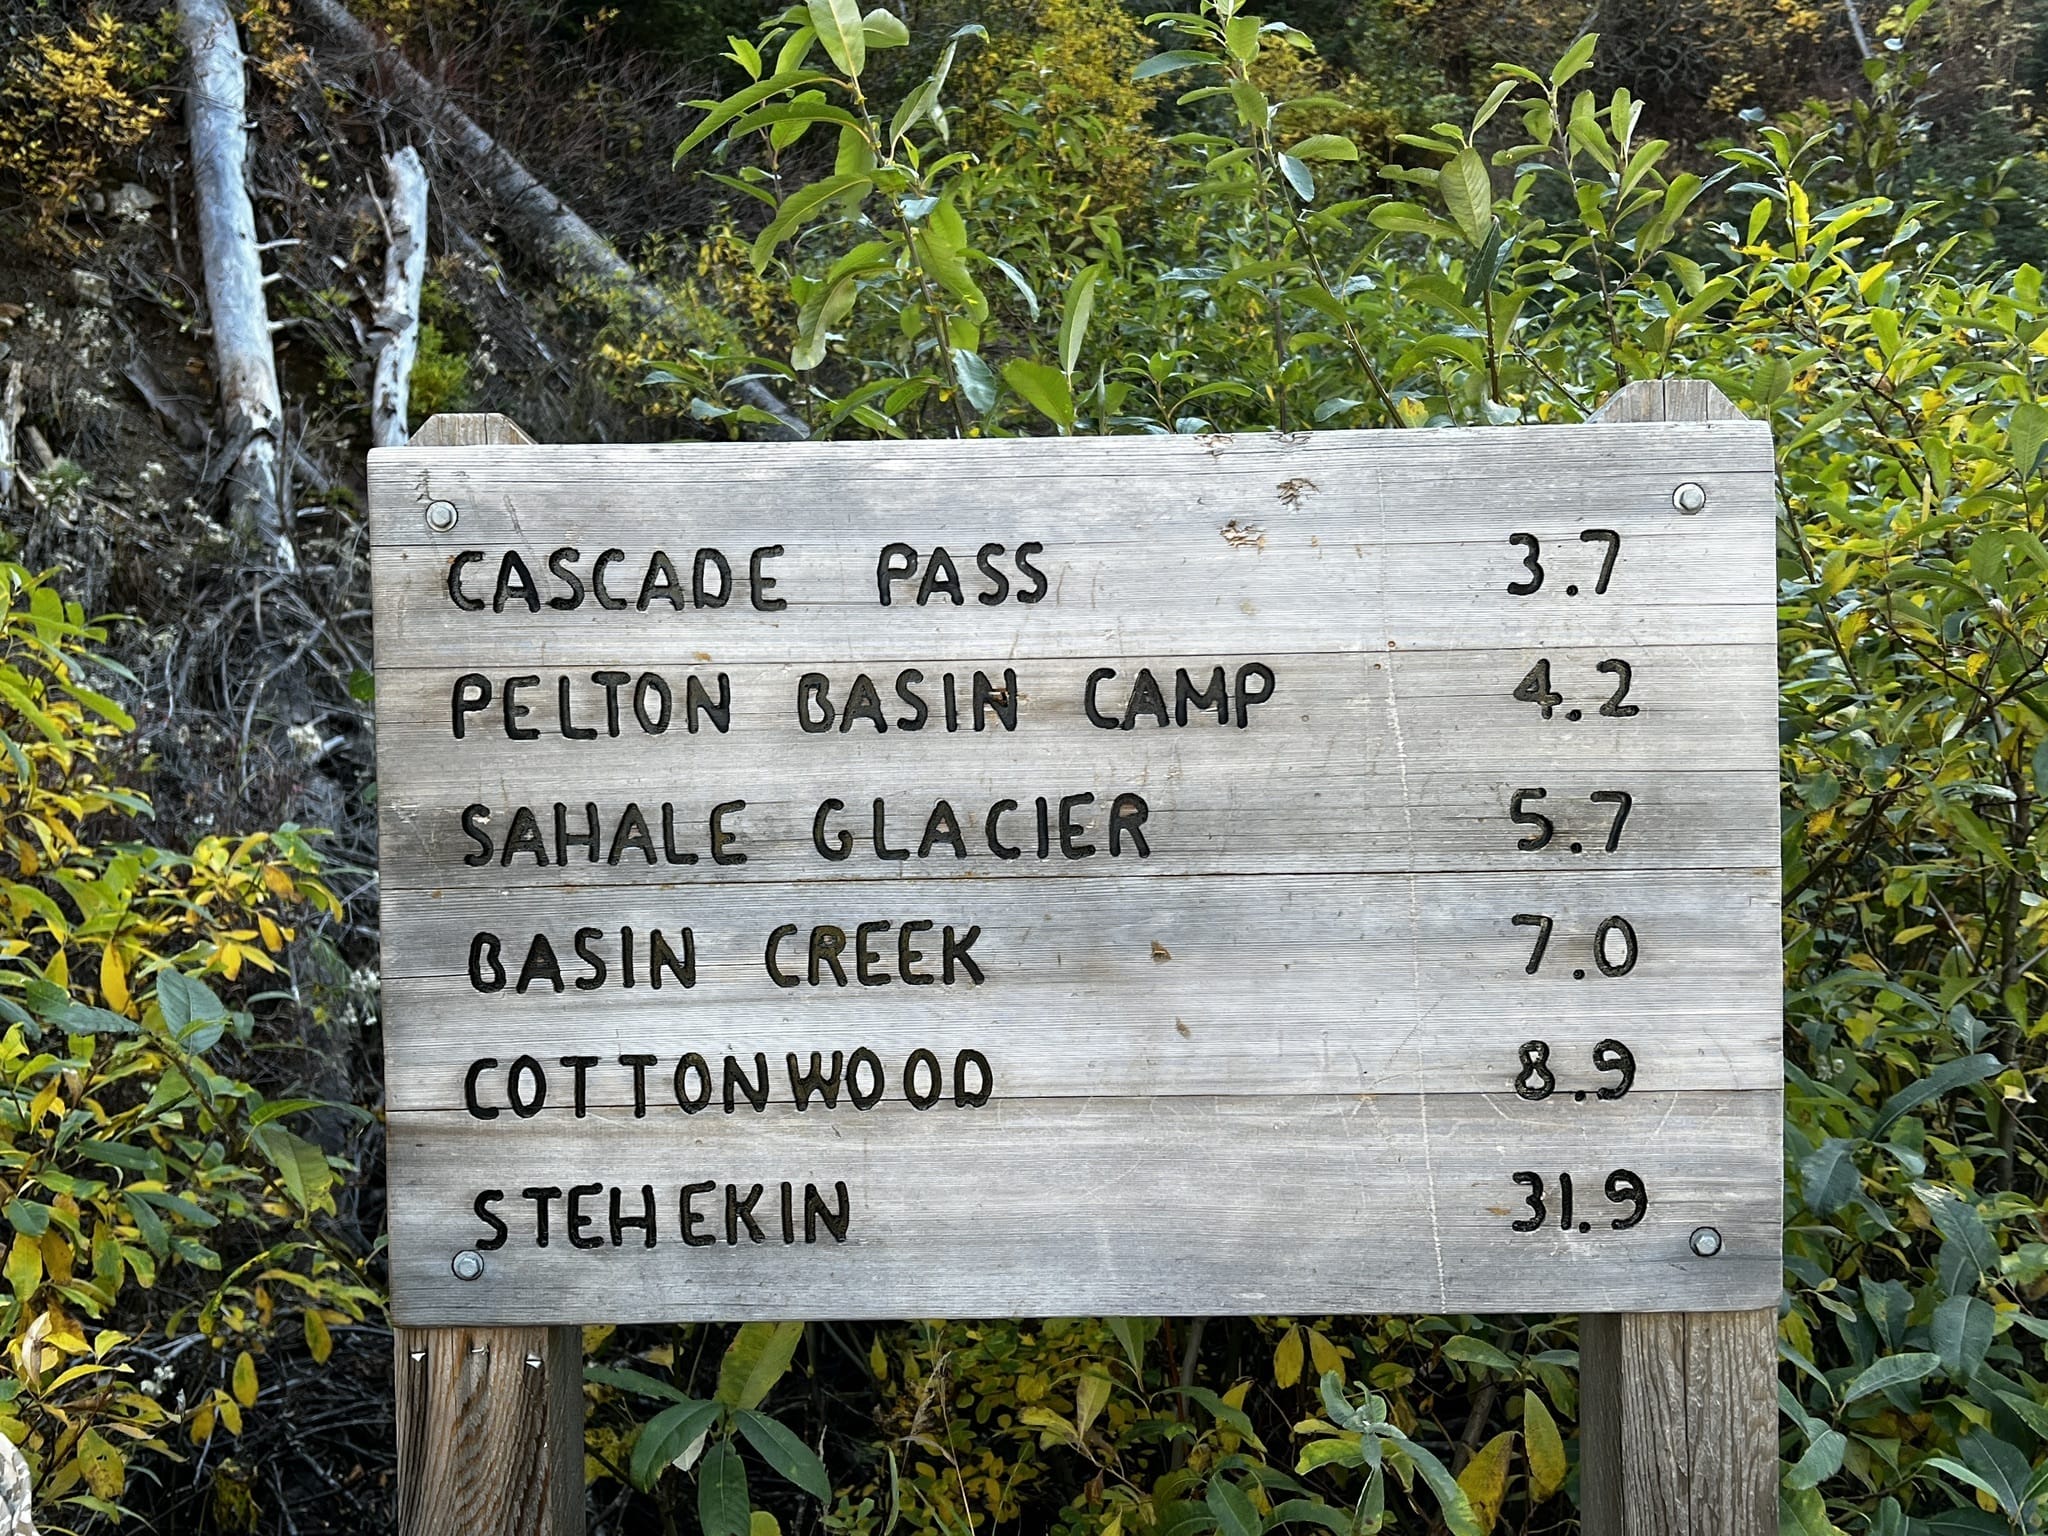 CASCADE PASS 3.7
PELTON BASIN CAMP 4.2
SAHALE GLACIER 5.7
BASIN CREEK 7.0
COTTONWOOD 8.9
STEHEKIN 31.9